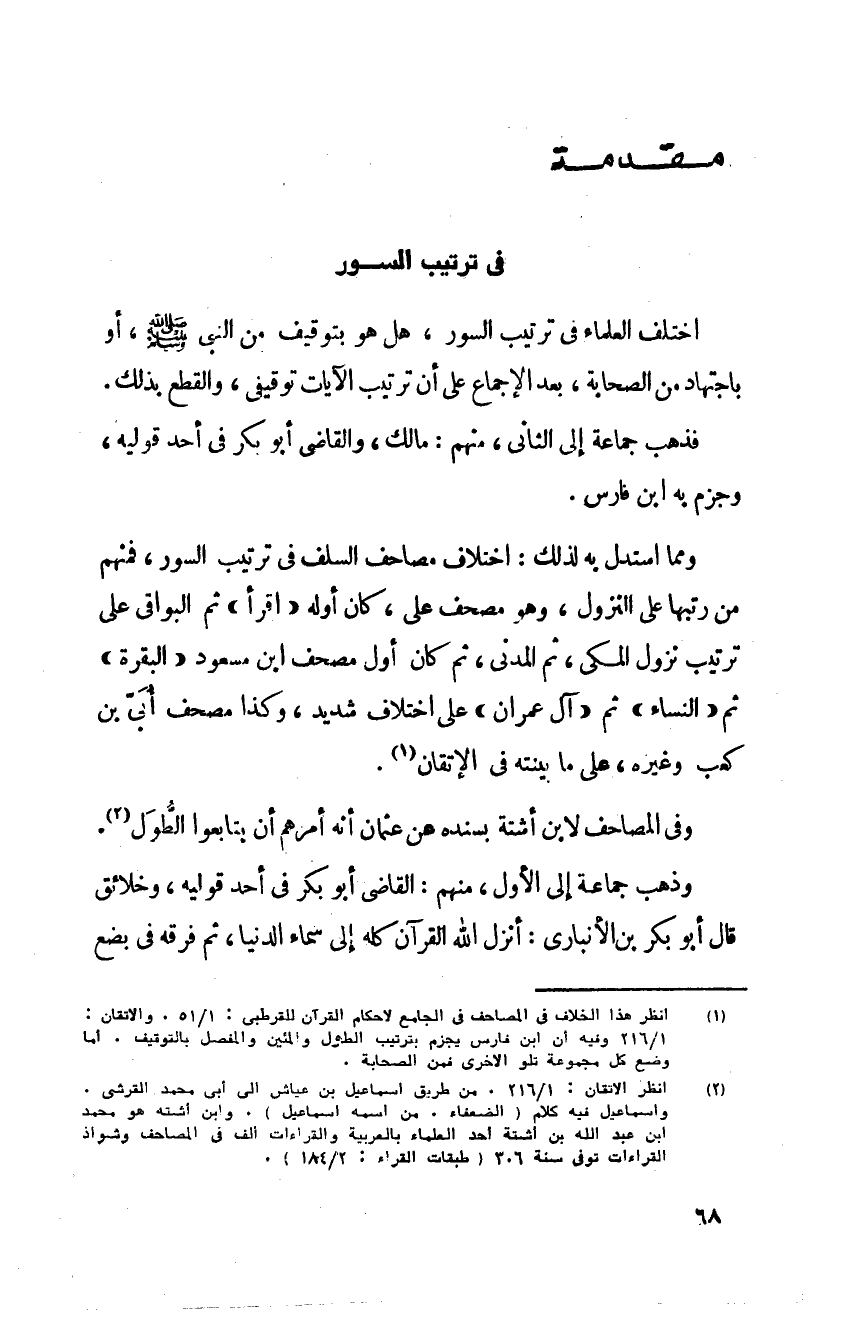 مقدمة
فى ترتيب السور
اختلف العلماء فى ترتيب السور ، هل هو بتوقيف من النبى ﷺ ، أو
باجتهاد من الصحابة ، بعد الإجماع على أن ترتيب الآيات توقيفى ، والقطع بذلك .
فذهب جماعة إلى الثانى ، منهم : مالك ، والقاضى أبو بكر فى أحد قوليه ،
وجزم به ابن فارس .
ومما استدل به لذلك : اختلاف مصاحف السلف فى ترتيب السور ، فمنهم
من رتبها على النزول ، وهو مصحف على ، كان أوله « اقرأ » ثم البواقى على
ترتيب نزول المكى ، ثم المدنى ، ثم كان أول مصحف ابن مسعود « البقرة »
ثم « النساء » ثم « آل عمران » على اختلاف شديد ، وكذا مصحف أُبَىّ بن
كعب وغيره ، على ما بينته فى الإتقان(١) .
وفى المصاحف لابن أشتة بسنده عن عثمان أنه أمرهم أن يتابعوا الطُّوَل(٢).
وذهب جماعة إلى الأول ، منهم : القاضى أبو بكر فى أحد قوليه ، وخلائق
قال أبو بكر بن الأنبارى : أنزل الله القرآن كله إلى سماء الدنيا ، ثم فرقه فى بضع
(١) انظر هذا الخلاف فى المصاحف فى الجامع لاحكام القرآن للقرطبى : ٥١/١ . والاتقان :
٢١٦/١ وفيه أن ابن فارس يجزم بترتيب الطول والمئين والمفصل بالتوقيف . أما
وضع كل مجموعة تلو الاخرى فمن الصحابة .
(٢) انظر الاتقان : ٢١٦/١ . من طريق اسماعيل بن عياش الى أبى محمد القرشى .
واسماعيل فيه كلام ( الضعفاء . من اسمه اسماعيل ) . وابن أشته هو محمد
ابن عبد الله بن أشتة أحد العلماء بالعربية والقراءات ألف فى المصاحف وشواذ
القراءات توفى سنة ٣٠٦ ( طبقات القراء : ١٨٤/٢ ) .
٦٨